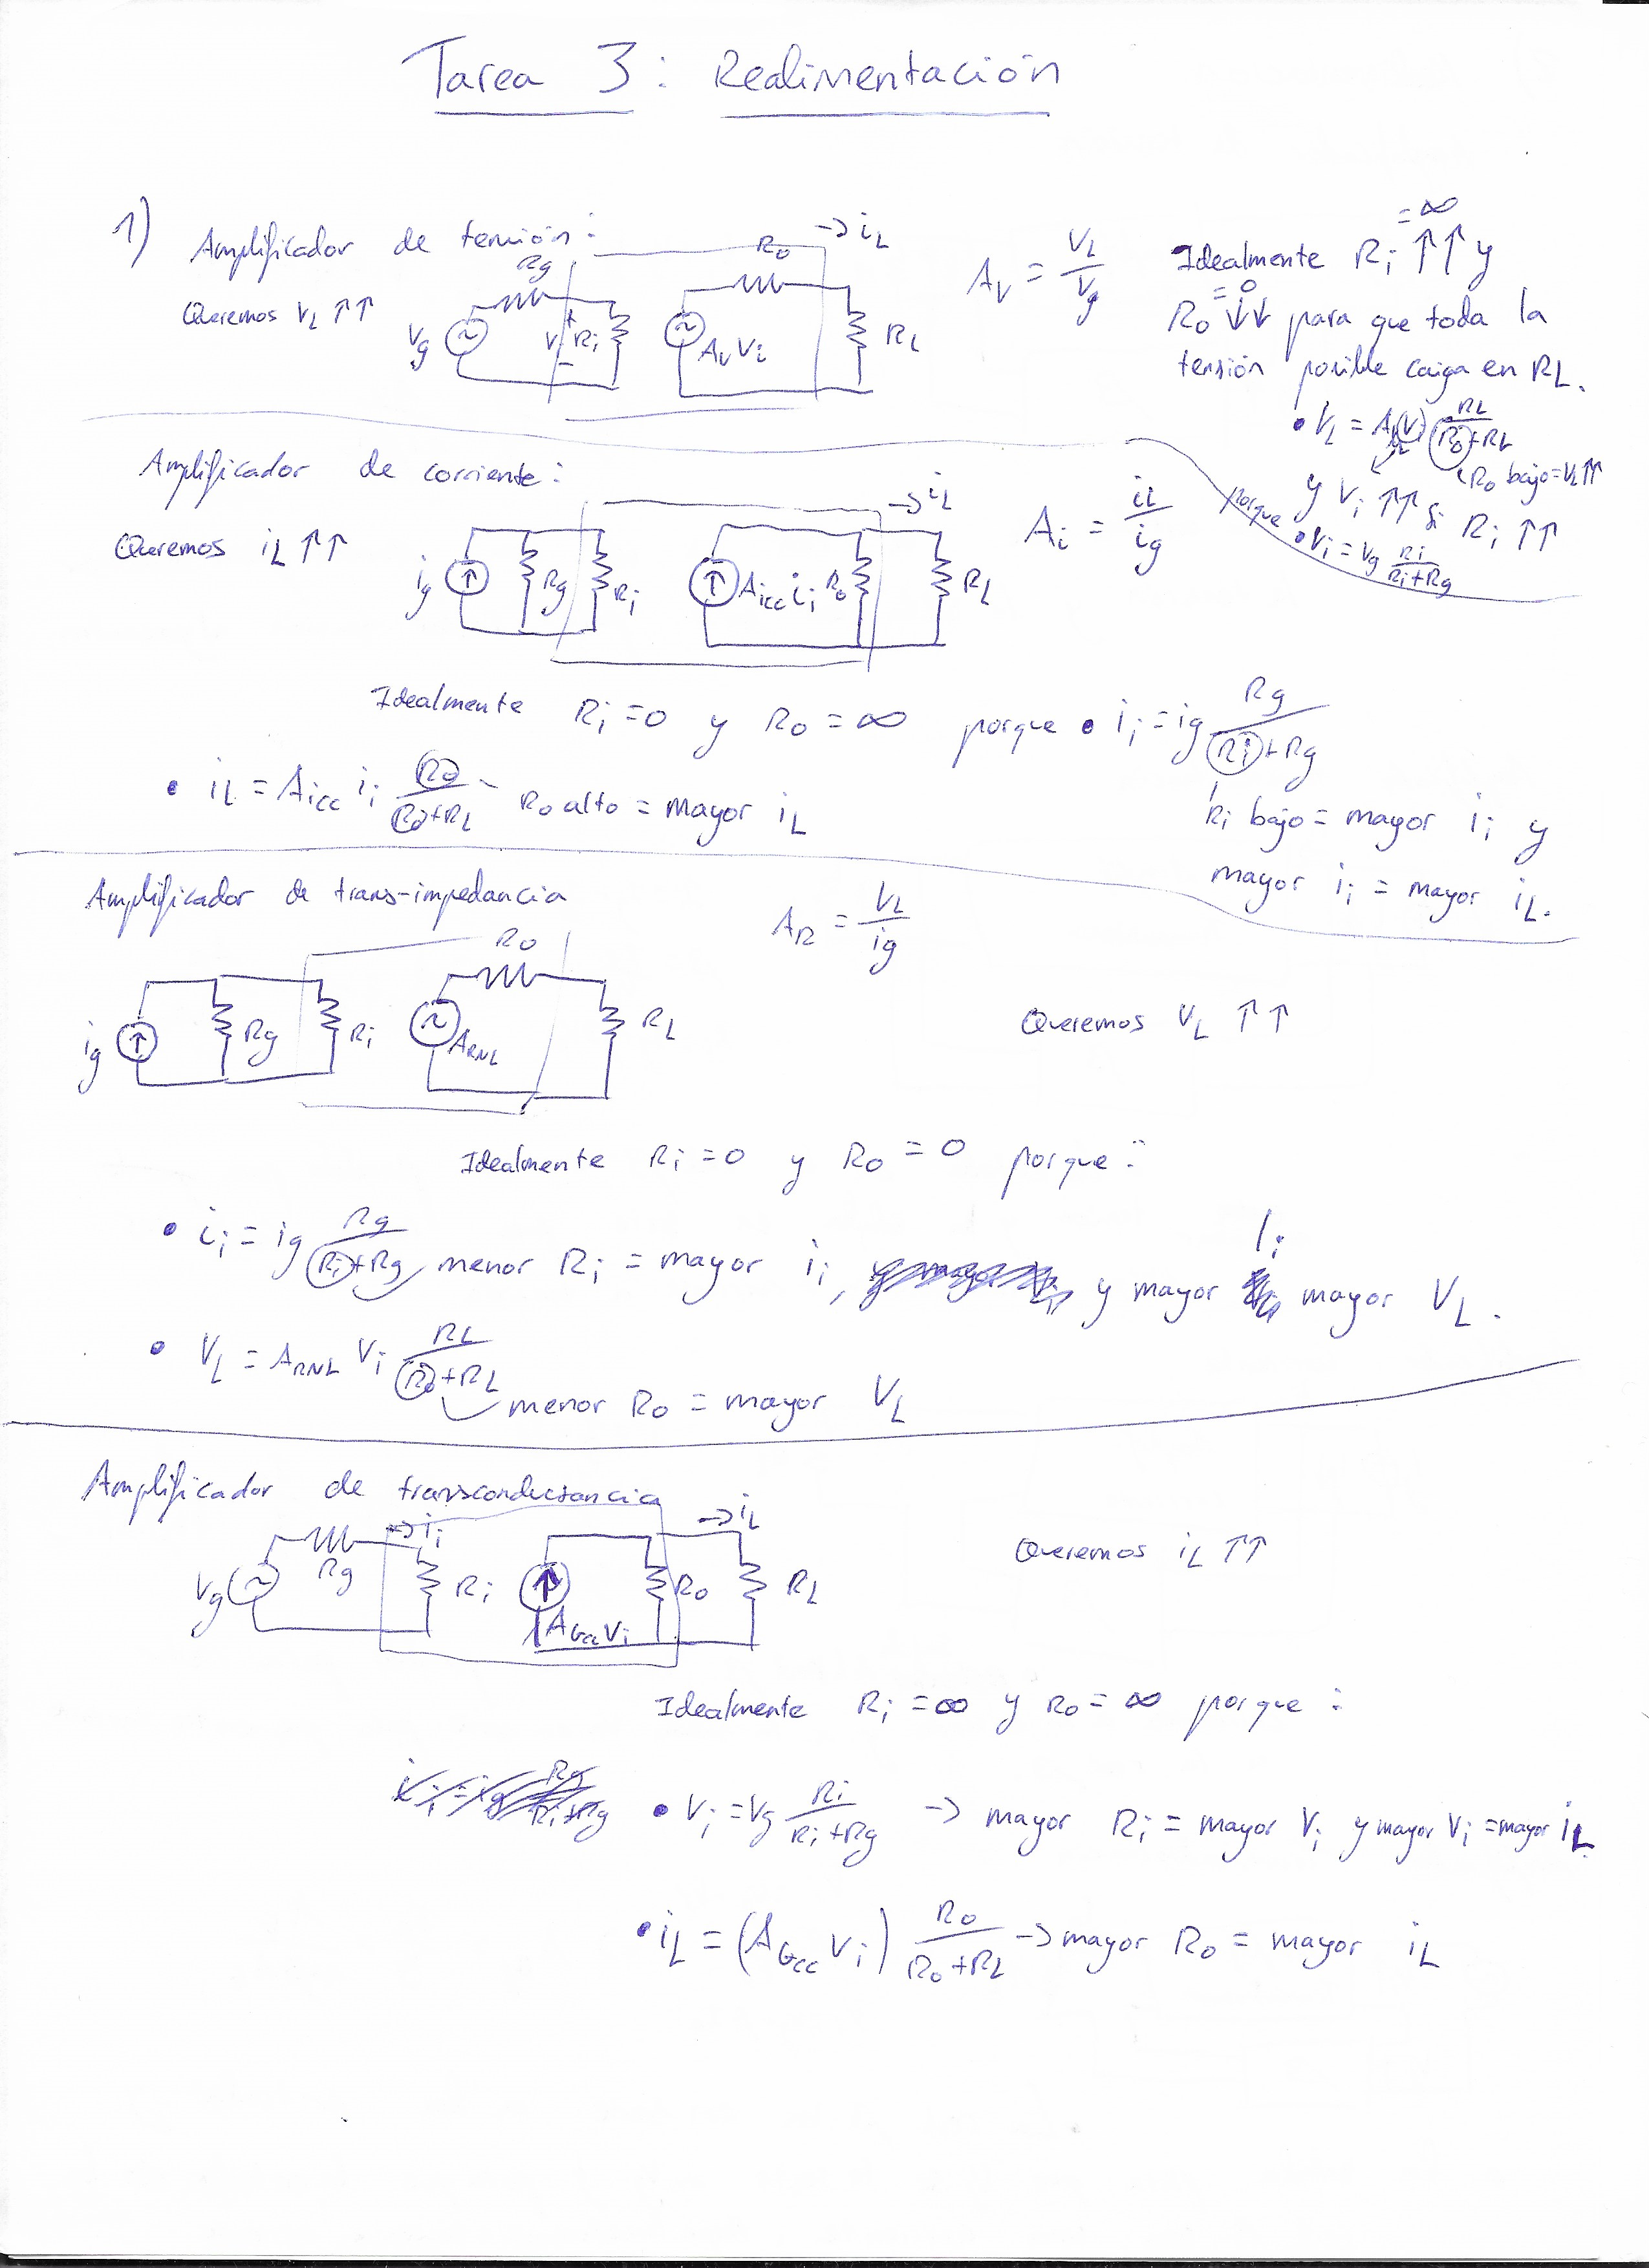 Tarea 3: Realimentación
1) Amplificador de tensión:
Queremos VL ↑↑
Rg
Vg
Vi
+
-
Ri
Ro
→ iL
Av Vi
RL
Av = VL/Vg
Idealmente Ri ↑↑ = ∞ y
Ro ↓↓ = 0 para que toda la
tensión posible caiga en RL.
• VL = Av Vi RL/(Ro+RL)
Ro bajo = VL ↑↑
y Vi ↑↑ si Ri ↑↑
porque • Vi = Vg Ri/(Ri+Rg)
Amplificador de corriente:
Queremos iL ↑↑
ig
Rg
Ri
Aicc ii
Ro
→ iL
RL
Ai = iL/ig
Idealmente Ri = 0 y Ro = ∞ porque • ii = ig Rg/(Ri+Rg)
Ri bajo = mayor ii y
mayor ii = mayor iL.
• iL = Aicc ii Ro/(Ro+RL) Ro alto = mayor iL
Amplificador de trans-impedancia
AR = VL/ig
ig
Rg
Ri
Ro
ARNL
RL
Queremos VL ↑↑
Idealmente Ri = 0 y Ro = 0 porque:
• ii = ig Rg/(Ri+Rg) menor Ri = mayor ii, y mayor Ii mayor VL.
• VL = ARNL Vi RL/(Ro+RL)
menor Ro = mayor VL
Amplificador de transconductancia
Vg
Rg
→ ii
Ri
AGcc Vi
Ro
→ iL
RL
Queremos iL ↑↑
Idealmente Ri = ∞ y Ro = ∞ porque:
• Vi = Vg Ri/(Ri+Rg) → mayor Ri = mayor Vi y mayor Vi = mayor iL.
• iL = (AGcc Vi) Ro/(Ro+RL) → mayor Ro = mayor iL